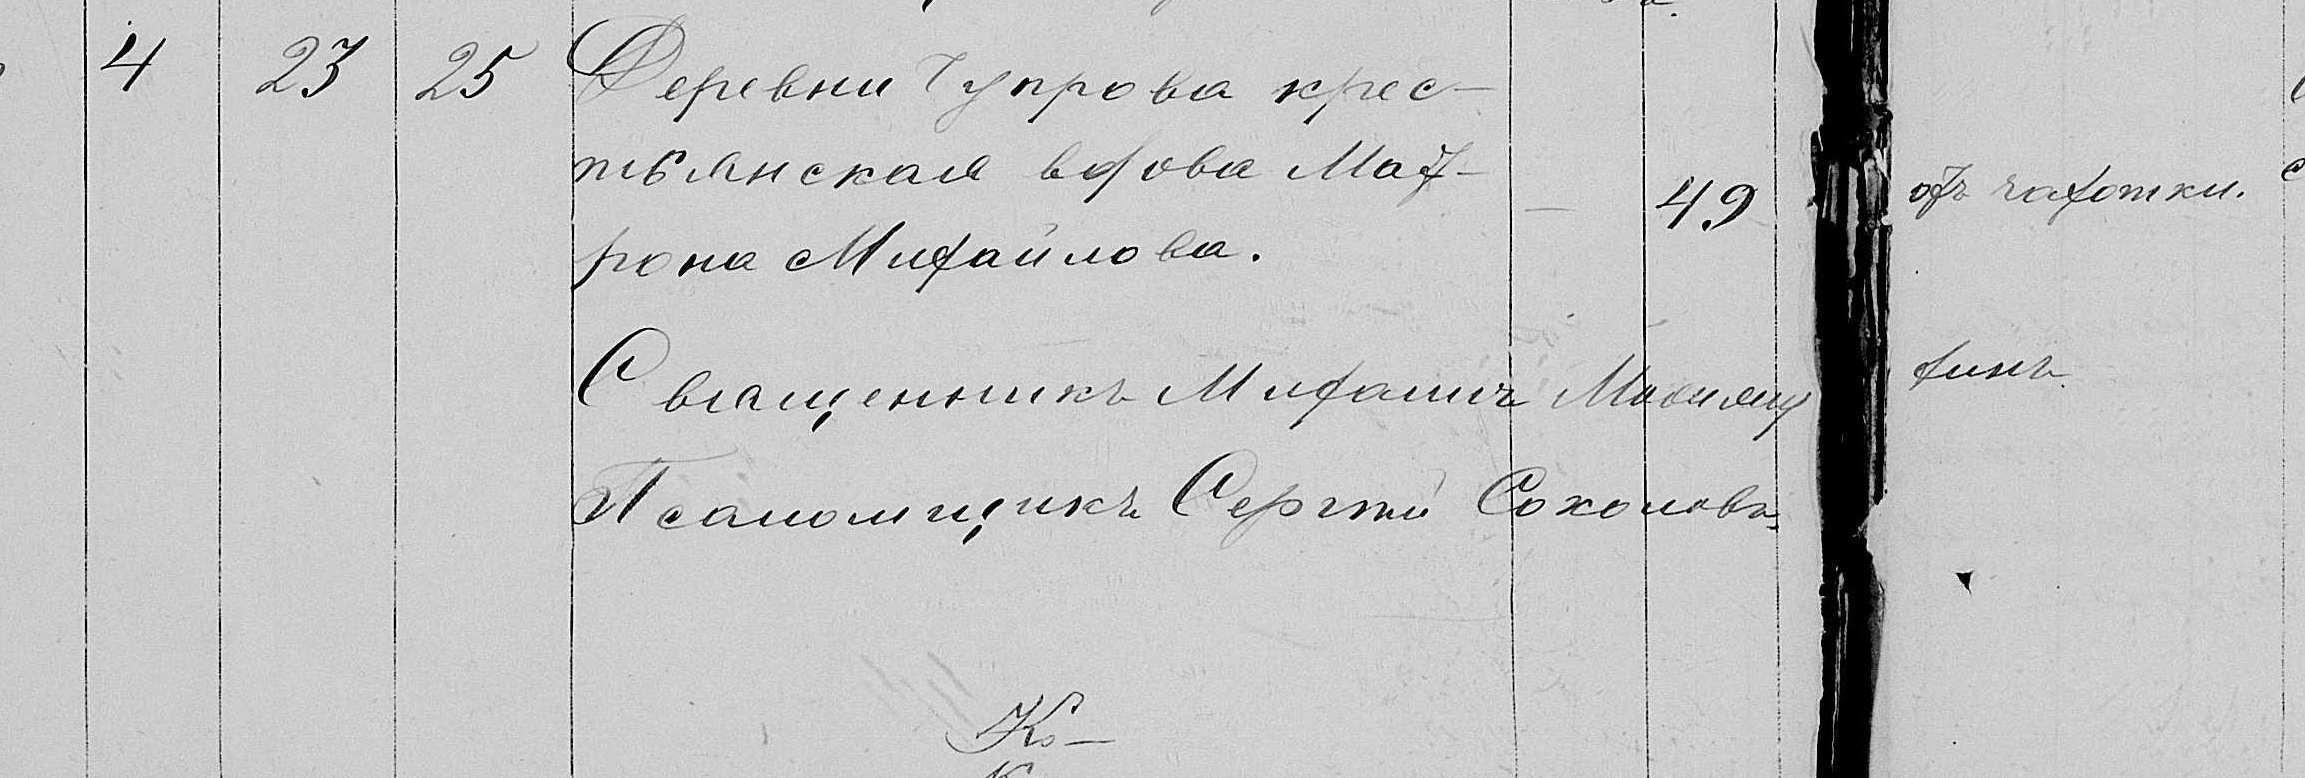 4 23 25 Деревни Чупрова крес-
тьянская вдова Мат-
рона Михайлова.
— 49 отъ чахотки.
Священникъ Михаилъ
Псаломщикъ Сергій Соколовъ
К